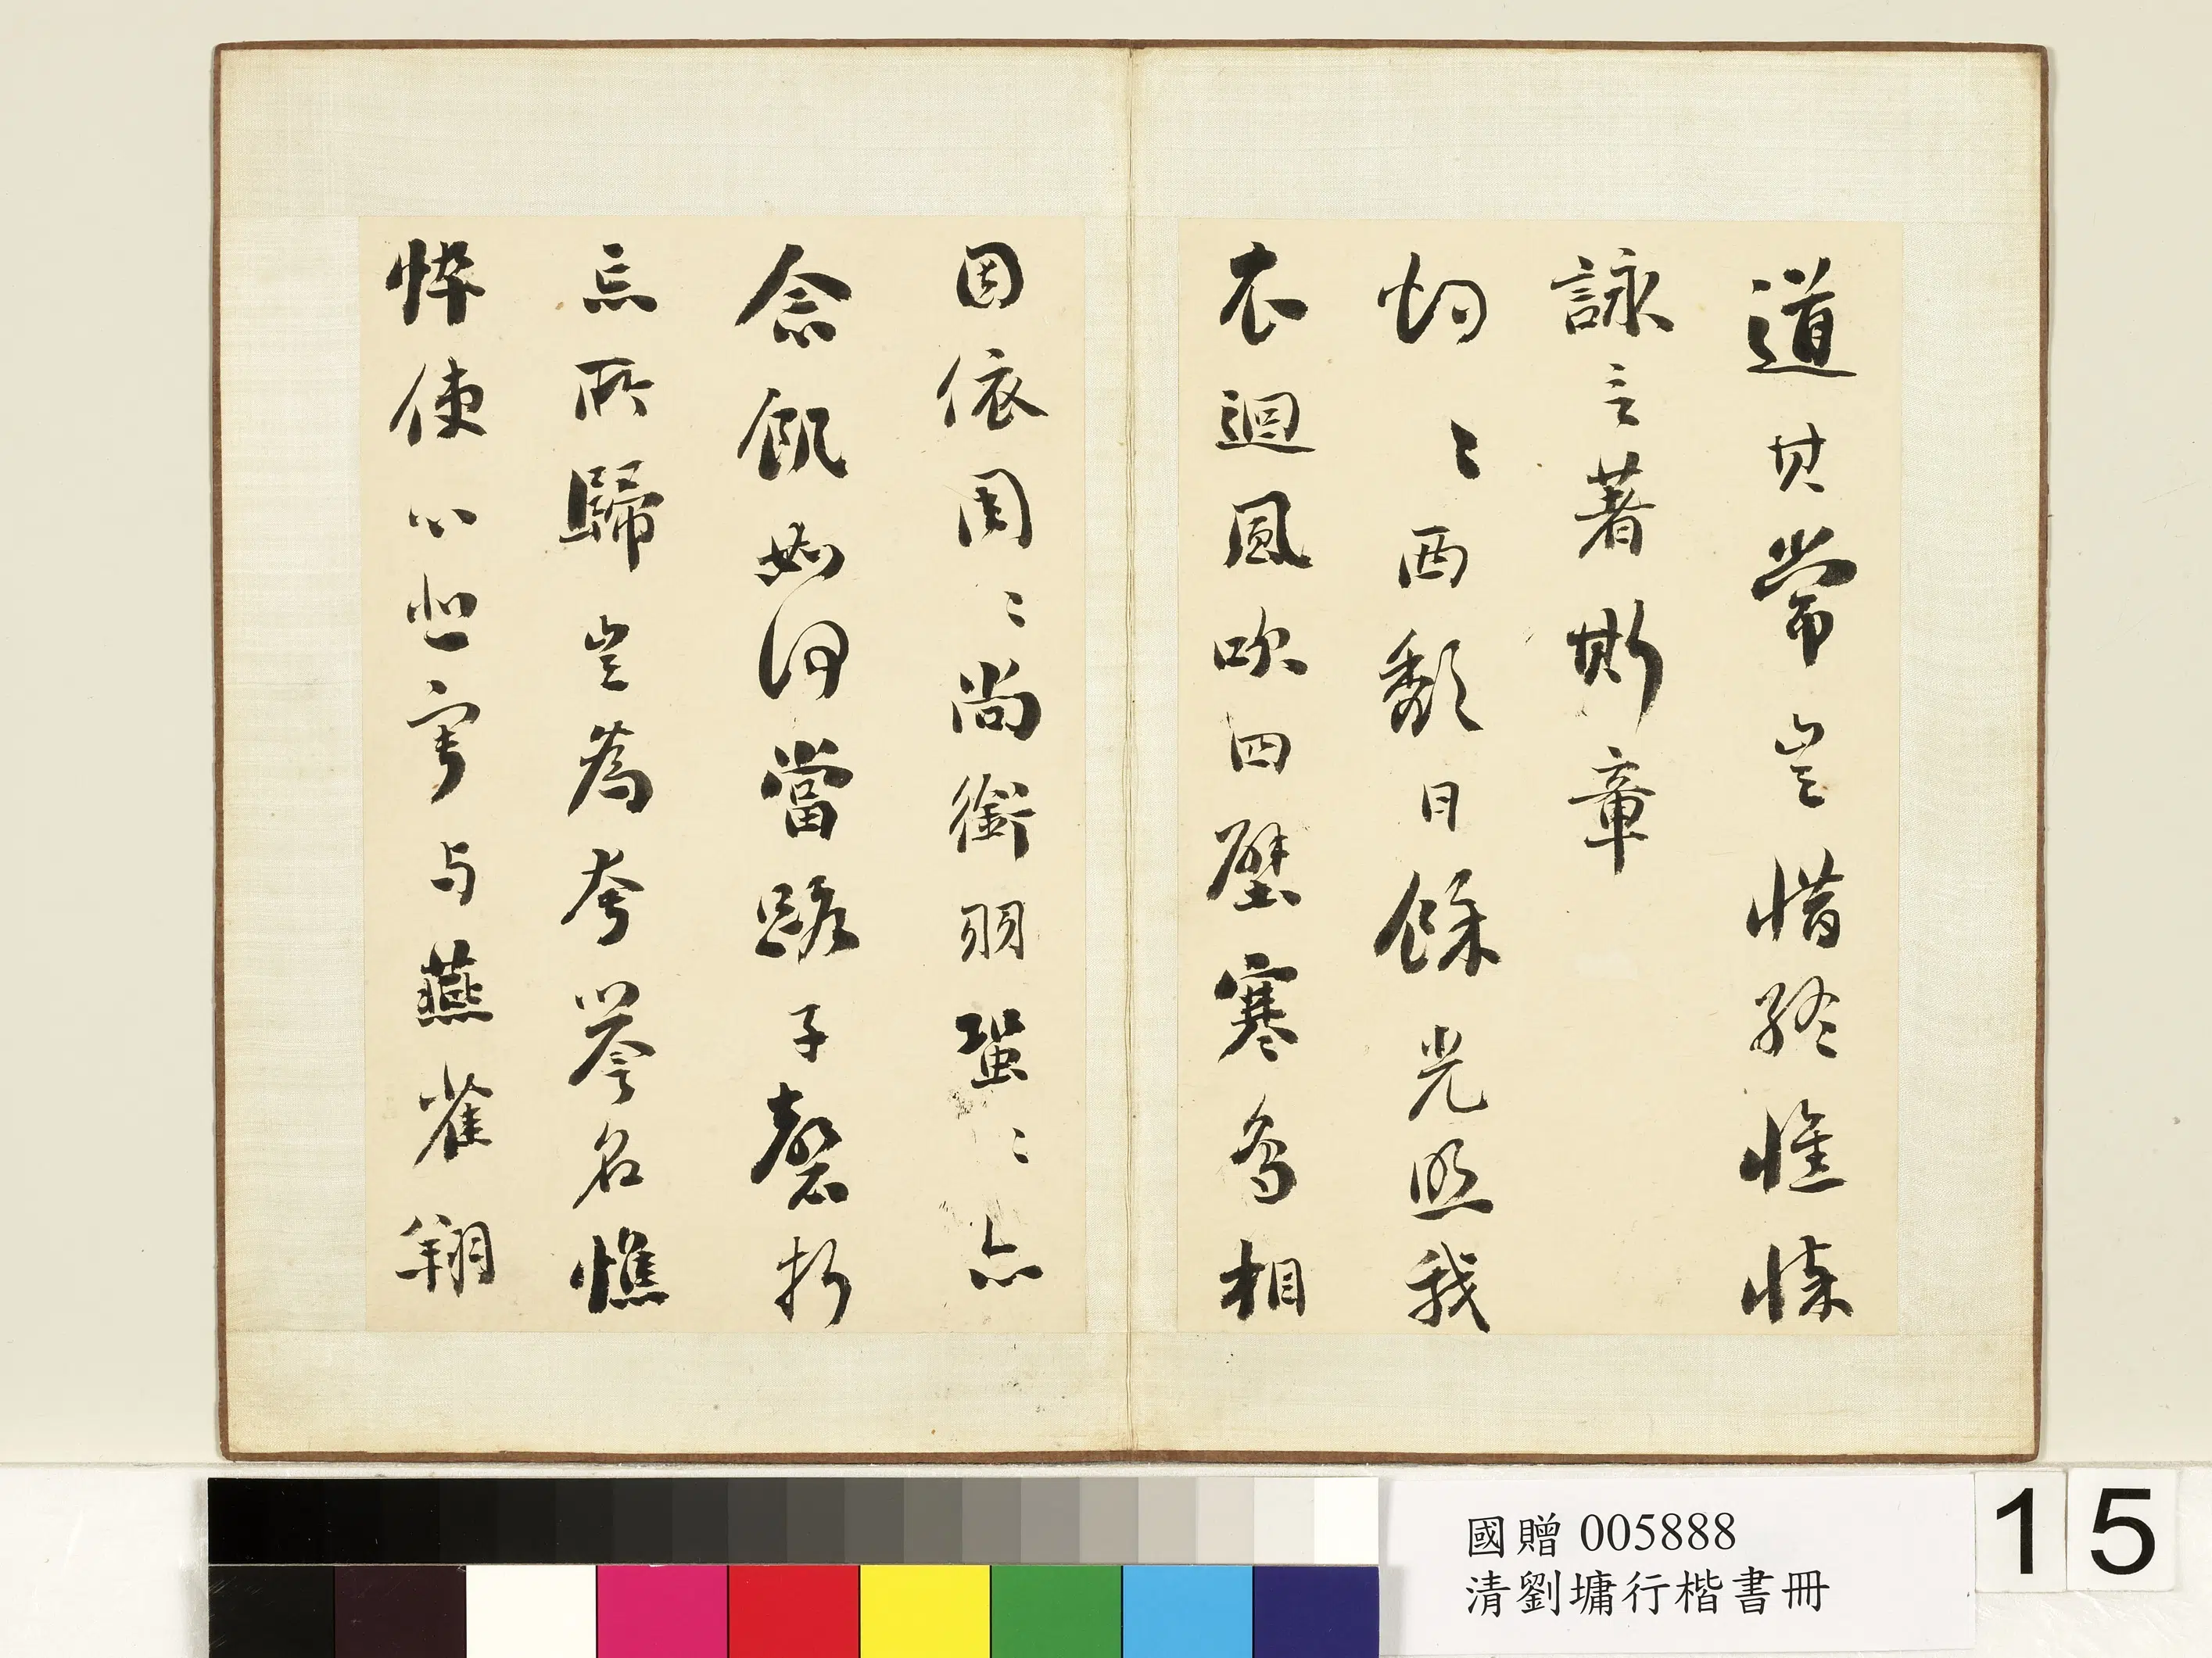 道其常豈惜終憔悴
詠言著斯章
灼〻西頹日餘光照我
衣迴風吹四壁寒鳥相
因依周〻尚銜羽蛩〻亦
念飢如何當路子磬折
忘所歸豈為夸譽名憔
悴使心悲寧与燕雀翔
國贈 005888
清劉墉行楷書冊
15